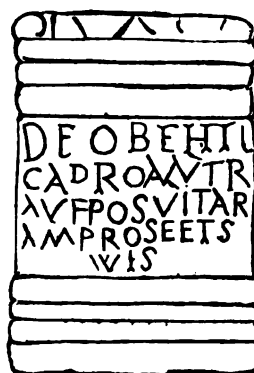 DEOBEHTL
CADROAVVTR
AVFPOSVITAR
AMPROSEETS
VVIS